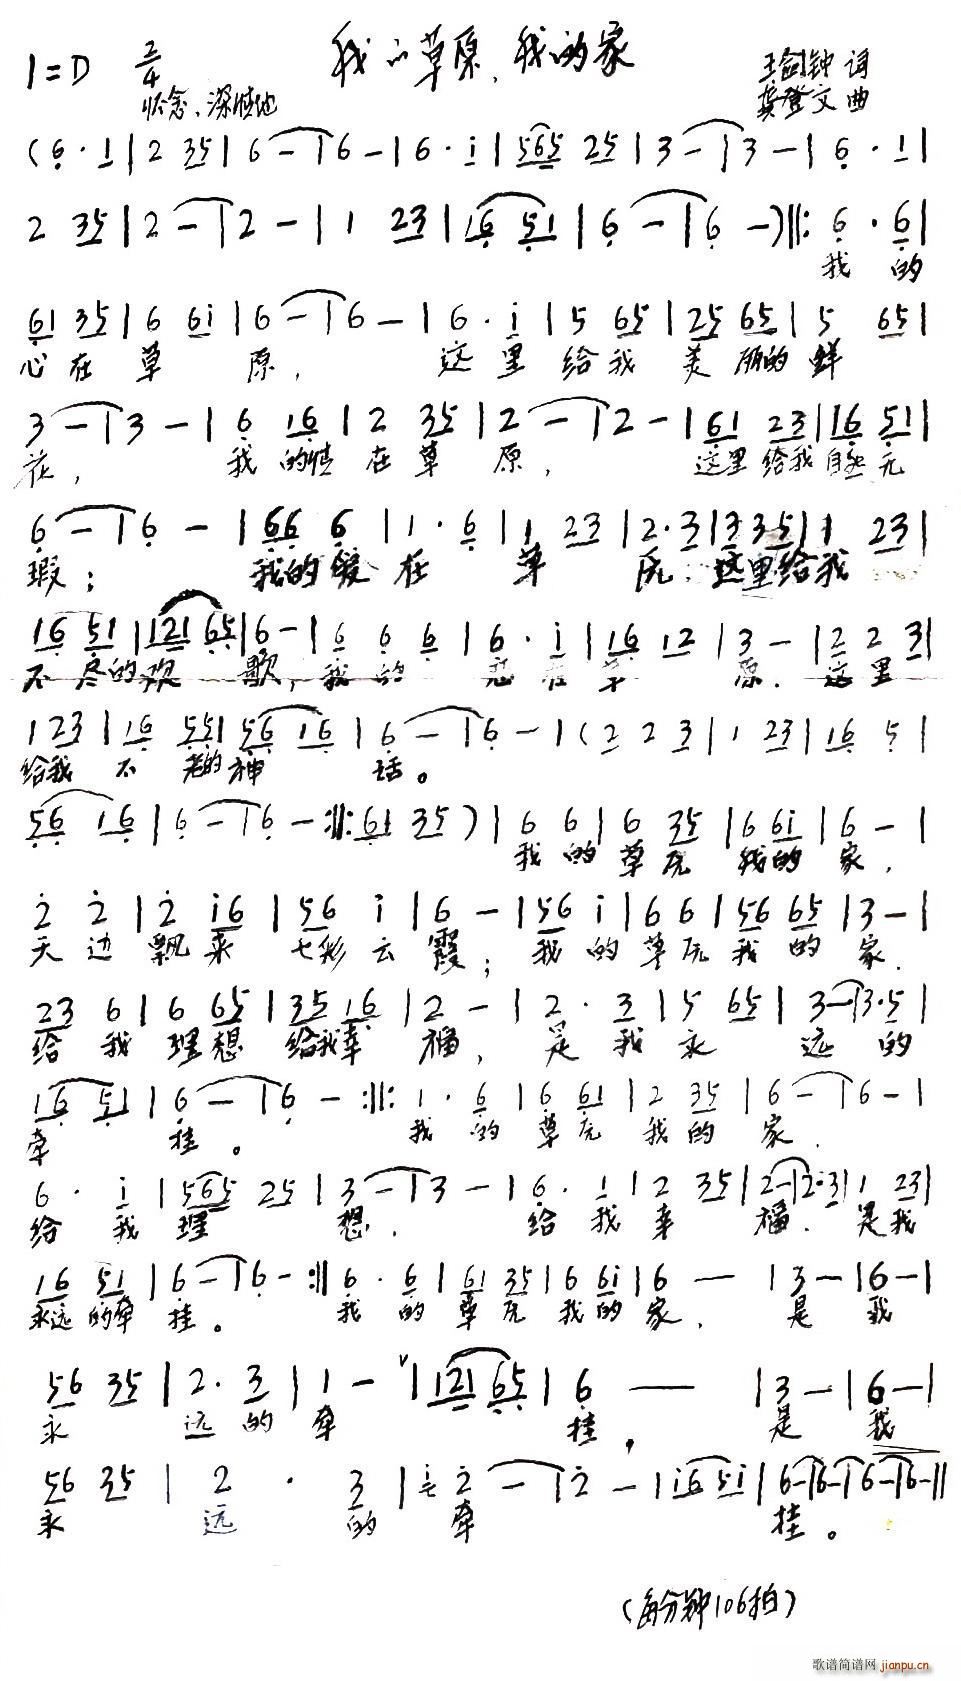 我的草原,我的家
1=D 2/4
怀念、深情地
王剑钟 词
龚登文 曲
(6·1|2 35|6-|6-|6·i|565 25|3-|3-|6·1|
2 35|2-|2-|1 23|16 51|6-|6-)‖:6·6|
我 的
61 35|6 6i|6-|6-|6·i|5 65|25 65|5 65|
心 在 草 原, 这 里 给 我 美 丽的 鲜
3-|3-|6 16|2 35|2-|2-|61 23|16 51|
花, 我 的情 在 草 原, 这里 给我 无
6-|6-|66 6|1·6|1 23|2·3|3 35|1 23|
瑕; 我的 爱 在 草 原. 这里给我
16 51|121 65|6-|6 6 6|6·i|16 12|3-|2 2 3|
不 尽的 欢 歌, 我 的 在 草 原. 这 里
1 23|16 55|56 16|6-|6-|(2 2 3|1 23|16 5|
给我 不 老的 神 话。
56 16|6-|6-:‖:61 35)|6 6|6 35|6 6i|6-|
我 的 草 原 我的 家,
2 2|2 i6|56 i|6-|56 i|6 6|56 65|3-|
天 边 飘 来 七彩 云 霞; 我 的 草 原 我 的 家.
23 6|6 65|35 16|2-|2·3|5 65|3-|3·5|
给 我 理 想 给我 幸 福, 是 我 永 远 的
16 51|6-|6-:‖:1·6|6 61|2 35|6-|6-|
牵 挂。 我 的 草 原 我 的 家.
6·i|565 25|3-|3-|6·1|2 35|2-|2·3|1 23|
给 我 理 想, 给 我 幸 福. 是我
16 51|6-|6-:‖6·6|61 35|6 6i|6 —|3-|6-|
永远 的牵 挂。 我 的 草 原 我 的 家, 是 我
56 35|2·3|1-|121 65|6 —|3-|6-|
永 远 的 牵 挂, 是 我
56 35|2·3|2-|2-|i6 5i|6-|6-|6-|6-‖
永 远 的 牵 挂。
(每分钟106拍)
歌谱简谱网 jianpu.cn